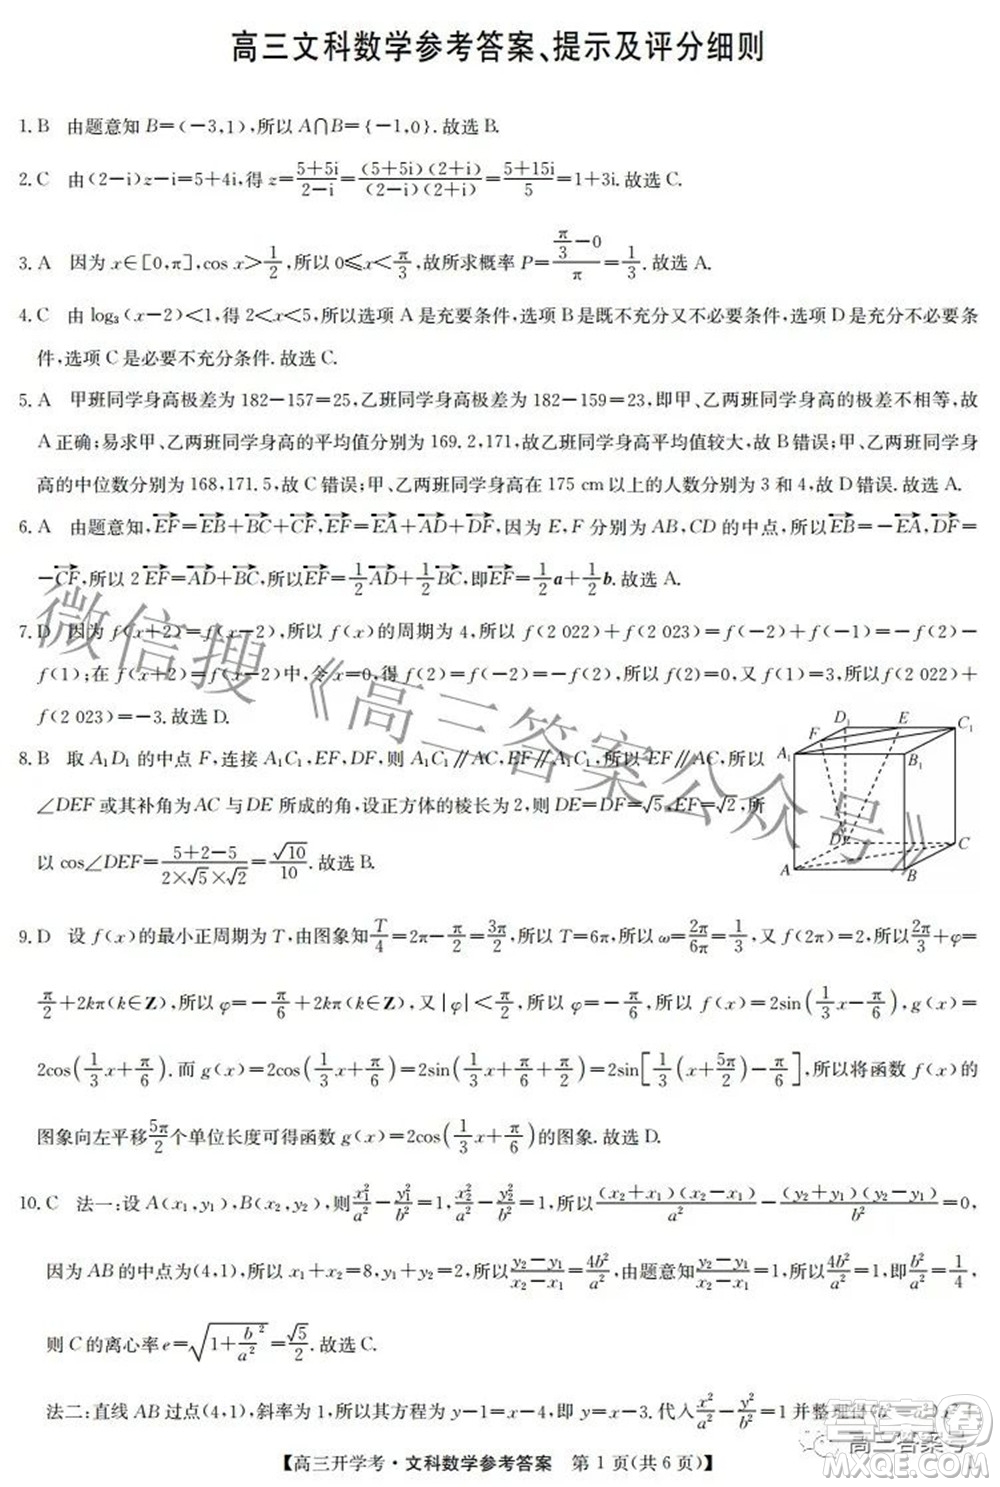 高三文科数学参考答案、提示及评分细则
1. B 由题意知 B=(-3,1),所以 A∩B={-1,0}.故选 B.
2. C 由(2-i)z-i=5+4i,得 z=(5+5i)/(2-i)=((5+5i)(2+i))/((2-i)(2+i))=(5+15i)/5=1+3i.故选 C.
3. A 因为 x∈[0,π],cos x>1/2,所以 0≤x<π/3,故所求概率 P=(π/3-0)/π=1/3.故选 A.
4. C 由 log₃(x-2)<1,得 2<x<5,所以选项 A 是充要条件,选项 B 是既不充分又不必要条件,选项 D 是充分不必要条件,
选项 C 是必要不充分条件.故选 C.
5. A 甲班同学身高极差为 182-157=25,乙班同学身高极差为 182-159=23,即甲、乙两班同学身高的极差不相等,故
A 正确;易求甲、乙两班同学身高的平均值分别为 169.2,171,故乙班同学身高平均值较大,故 B 错误;甲、乙两班同学身高
的中位数分别为 168,171.5,故 C 错误;甲、乙两班同学身高在 175 cm 以上的人数分别为 3 和 4,故 D 错误.故选 A.
6. A 由题意知,EF→=EB→+BC→+CF→,EF→=EA→+AD→+DF→,因为 E,F 分别为 AB,CD 的中点,所以EB→=-EA→,DF→=
-CF→,所以 2EF→=AD→+BC→,所以EF→=1/2AD→+1/2BC→,即EF→=1/2a+1/2b.故选 A.
7. D 因为 f(x+2)=f(x-2),所以 f(x)的周期为 4,所以 f(2 022)+f(2 023)=f(-2)+f(-1)=-f(2)-
f(1);在 f(x+2)=f(x-2)中,令 x=0,得 f(2)=f(-2)=-f(2),所以 f(2)=0.又 f(1)=3,所以 f(2 022)+
f(2 023)=-3.故选 D.
8. B 取 A₁D₁ 的中点 F,连接 A₁C₁,EF,DF,则 A₁C₁∥AC,EF∥A₁C₁,所以 EF∥AC,所以
∠DEF 或其补角为 AC 与 DE 所成的角,设正方体的棱长为 2,则 DE=DF=√5,EF=√2,所
以 cos∠DEF=(5+2-5)/(2×√5×√2)=√10/10.故选 B.
D₁ E C₁
F
A₁ B₁
D C
A B
9. D 设 f(x)的最小正周期为 T,由图象知T/4=2π-π/2=3π/2,所以 T=6π,所以 ω=2π/6π=1/3,又 f(2π)=2,所以2π/3+φ=
π/2+2kπ(k∈Z),所以 φ=-π/6+2kπ(k∈Z),又|φ|<π/2,所以 φ=-π/6,所以 f(x)=2sin(1/3x-π/6),g(x)=
2cos(1/3x+π/6).而 g(x)=2cos(1/3x+π/6)=2sin(1/3x+π/6+π/2)=2sin[1/3(x+5π/2)-π/6],所以将函数 f(x)的
图象向左平移5π/2个单位长度可得函数 g(x)=2cos(1/3x+π/6)的图象.故选 D.
10. C 法一:设 A(x₁,y₁),B(x₂,y₂),则x₁²/a²-y₁²/b²=1,x₂²/a²-y₂²/b²=1,所以((x₂+x₁)(x₂-x₁))/a²-((y₂+y₁)(y₂-y₁))/b²=0,
因为 AB 的中点为(4,1),所以 x₁+x₂=8,y₁+y₂=2,所以(y₂-y₁)/(x₂-x₁)=4b²/a²,由题意知(y₂-y₁)/(x₂-x₁)=1,所以4b²/a²=1,即b²/a²=1/4,
则 C 的离心率 e=√(1+b²/a²)=√5/2.故选 C.
法二:直线 AB 过点(4,1),斜率为 1,所以其方程为 y-1=x-4,即 y=x-3.代入x²/a²-y²/b²=1 并整理得
【高三开学考·文科数学参考答案 第 1 页(共 6 页)】
微信搜《高三答案公众号》
高三答案号